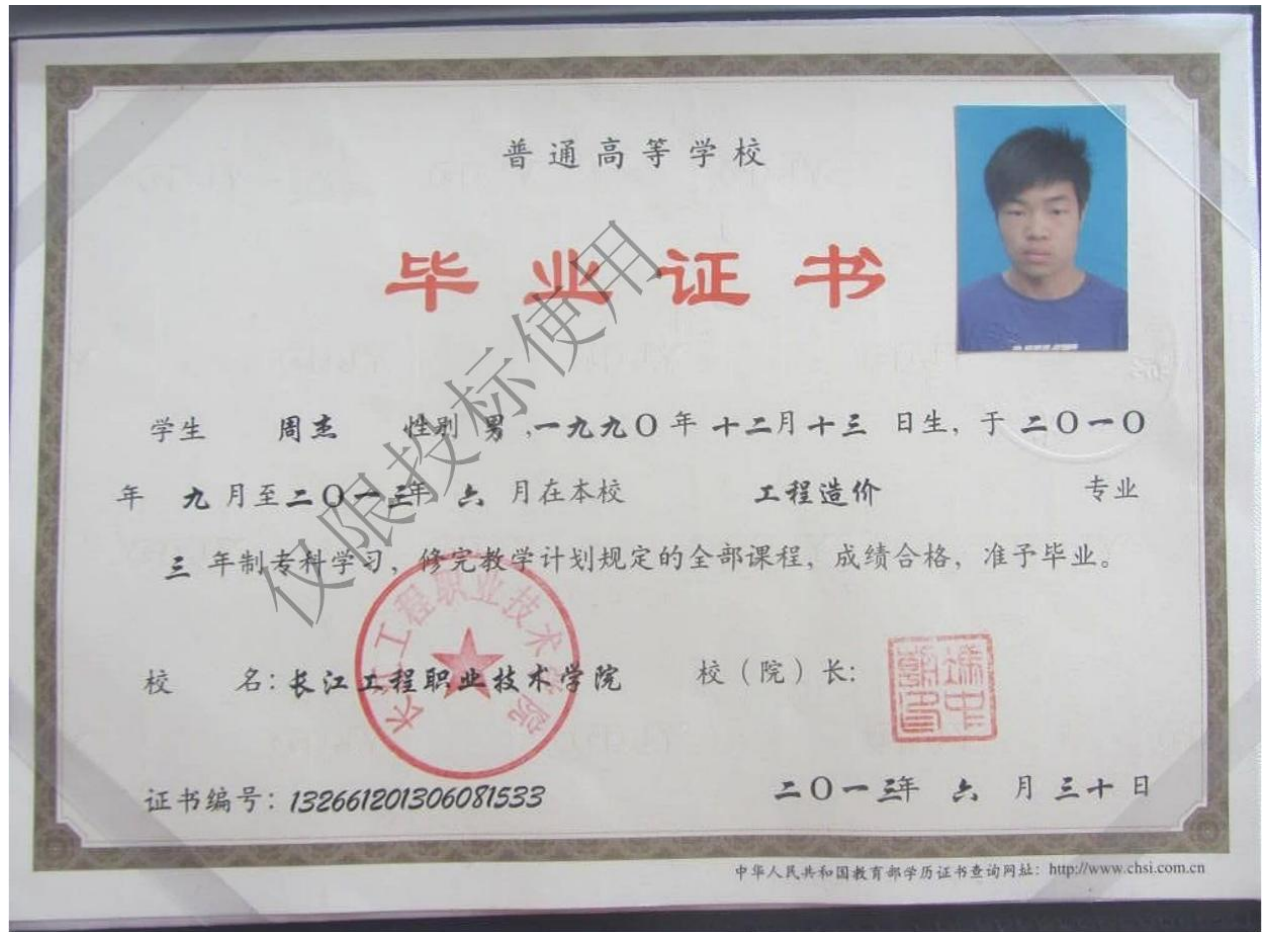 普通高等学校
毕业证书
学生 周杰 性别 男，一九九〇年 十二月十三 日生，于 二〇一〇
年 九 月至二〇一三年 六 月在本校 工程造价 专业
三 年制专科学习，修完教学计划规定的全部课程，成绩合格，准予毕业。
校 名：长江工程职业技术学院 校（院）长：
长江工程职业技术学院
证书编号：132661201306081533 二〇一三年 六 月 三十 日
中华人民共和国教育部学历证书查询网址：http://www.chsi.com.cn
仅限投标使用